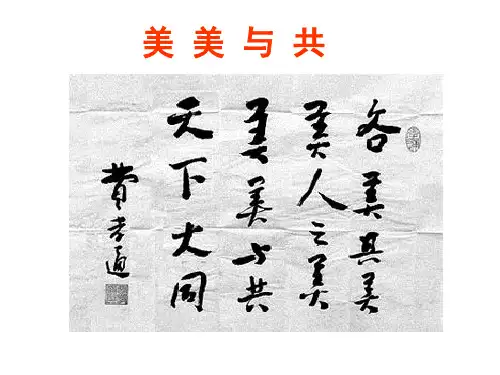 美美与共
各美其美
美人之美
美美与共
天下大同
费孝通